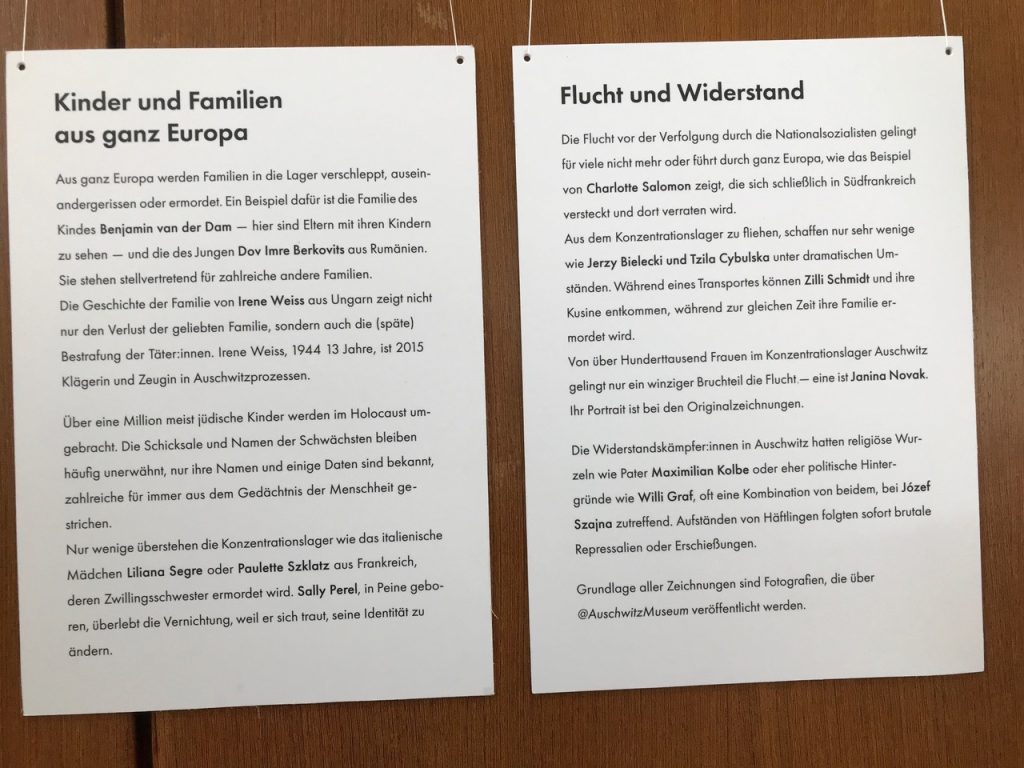 Kinder und Familien
aus ganz Europa
Aus ganz Europa werden Familien in die Lager verschleppt, ausein-
andergerissen oder ermordet. Ein Beispiel dafür ist die Familie des
Kindes Benjamin van der Dam — hier sind Eltern mit ihren Kindern
zu sehen — und die des Jungen Dov Imre Berkovits aus Rumänien.
Sie stehen stellvertretend für zahlreiche andere Familien.
Die Geschichte der Familie von Irene Weiss aus Ungarn zeigt nicht
nur den Verlust der geliebten Familie, sondern auch die (späte)
Bestrafung der Täter:innen. Irene Weiss, 1944 13 Jahre, ist 2015
Klägerin und Zeugin in Auschwitzprozessen.
Über eine Million meist jüdische Kinder werden im Holocaust um-
gebracht. Die Schicksale und Namen der Schwächsten bleiben
häufig unerwähnt, nur ihre Namen und einige Daten sind bekannt,
zahlreiche für immer aus dem Gedächtnis der Menschheit ge-
strichen.
Nur wenige überstehen die Konzentrationslager wie das italienische
Mädchen Liliana Segre oder Paulette Szklatz aus Frankreich,
deren Zwillingsschwester ermordet wird. Sally Perel, in Peine gebo-
ren, überlebt die Vernichtung, weil er sich traut, seine Identität zu
ändern.
Flucht und Widerstand
Die Flucht vor der Verfolgung durch die Nationalsozialisten gelingt
für viele nicht mehr oder führt durch ganz Europa, wie das Beispiel
von Charlotte Salomon zeigt, die sich schließlich in Südfrankreich
versteckt und dort verraten wird.
Aus dem Konzentrationslager zu fliehen, schaffen nur sehr wenige
wie Jerzy Bielecki und Tzila Cybulska unter dramatischen Um-
ständen. Während eines Transportes können Zilli Schmidt und ihre
Kusine entkommen, während zur gleichen Zeit ihre Familie er-
mordet wird.
Von über Hunderttausend Frauen im Konzentrationslager Auschwitz
gelingt nur ein winziger Bruchteil die Flucht — eine ist Janina Novak.
Ihr Portrait ist bei den Originalzeichnungen.
Die Widerstandskämpfer:innen in Auschwitz hatten religiöse Wur-
zeln wie Pater Maximilian Kolbe oder eher politische Hinter-
gründe wie Willi Graf, oft eine Kombination von beidem, bei Józef
Szajna zutreffend. Aufständen von Häftlingen folgten sofort brutale
Repressalien oder Erschießungen.
Grundlage aller Zeichnungen sind Fotografien, die über
@AuschwitzMuseum veröffentlicht werden.